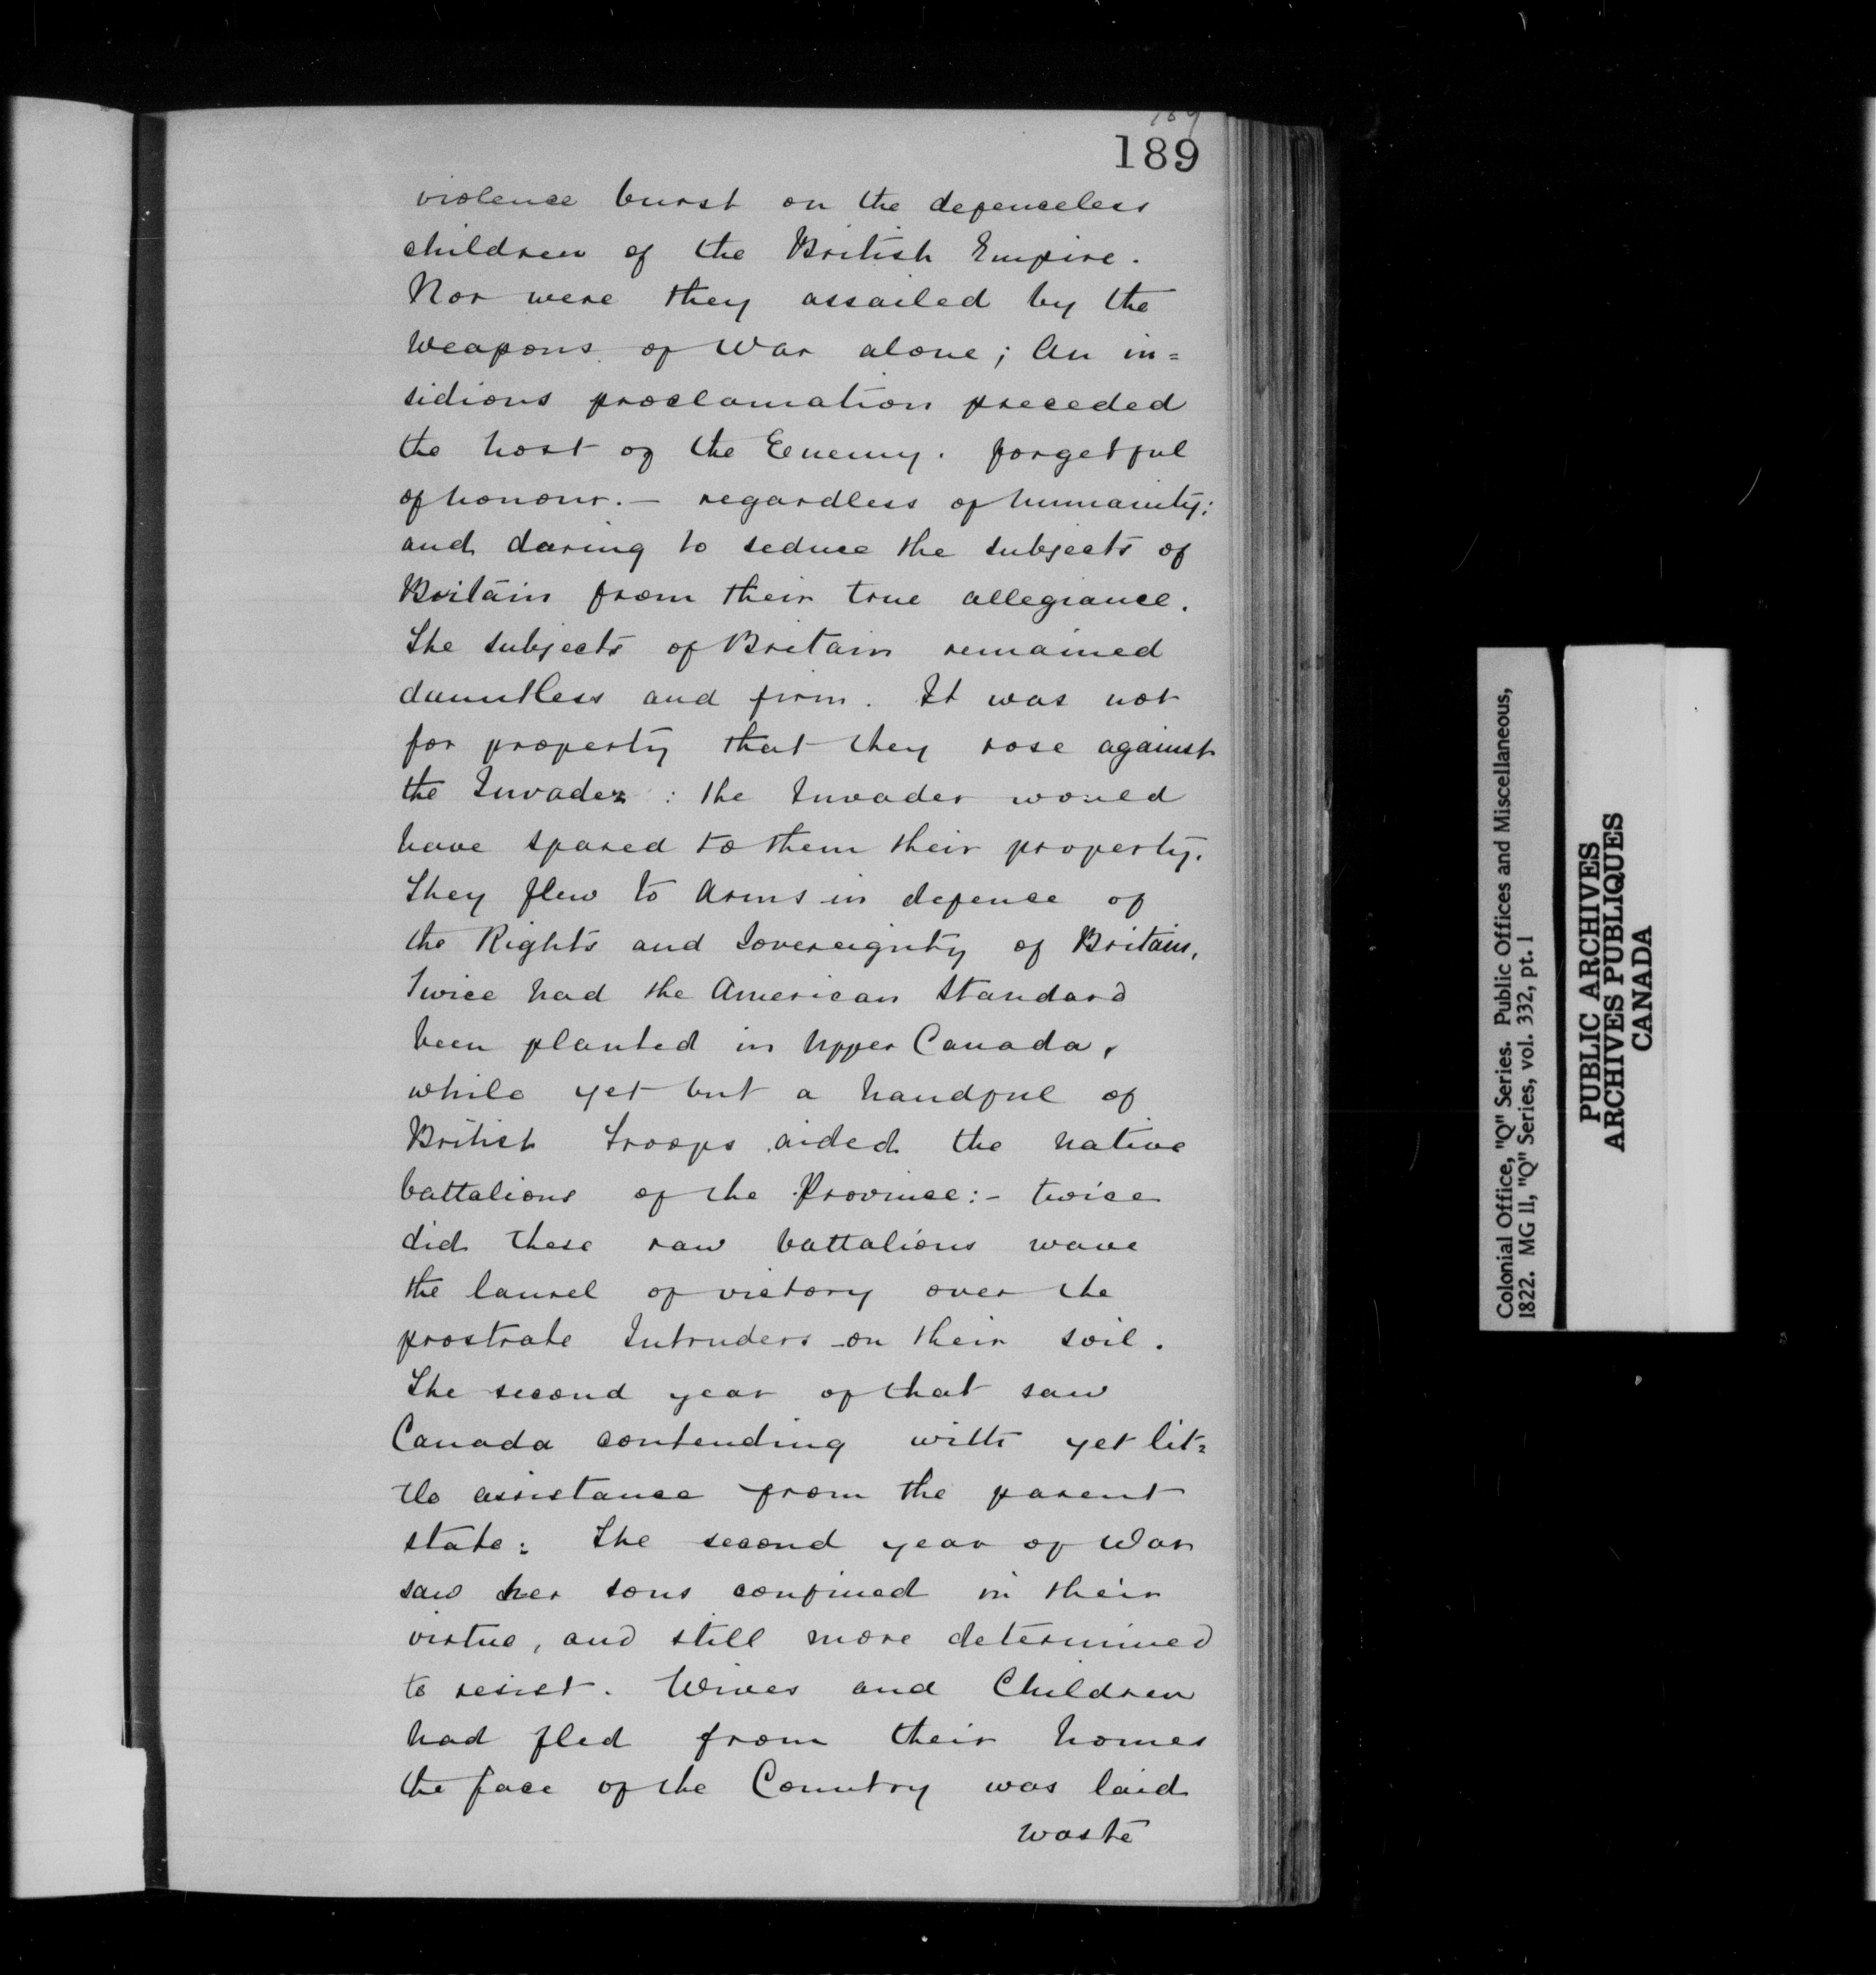 189
189
violence burst on the defenceless
children of the British Empire.
Nor were they assailed by the
weapons of War alone; An in=
sidious proclamation preceded
the host of the Enemy. forgetful
of honour. — regardless of humanity;
and daring to seduce the subjects of
Britain from their true allegiance.
The subjects of Britain remained
dauntless and firm. It was not
for property that they rose against
the Invader : the Invader would
have spared to them their property.
They flew to Arms in defence of
the Rights and Sovereignty of Britain,
Twice had the American Standard
been planted in Upper Canada,
while yet but a handful of
British Troops aided the native
battalions of the Province:- twice
did these raw battalions wave
the laurel of victory over the
prostrate Intruders on their soil.
The second year of that saw
Canada contending with yet lit=
tle assistance from the parent
state: The second year of War
saw her sons confirmed in their
virtue, and still more determined
to resist. Wives and Children
had fled from their homes
the face of the Country was laid
waste
Colonial Office, "Q" Series. Public Offices and Miscellaneous,
1822. MG 11, "Q" Series, vol. 332, pt. 1
PUBLIC ARCHIVES
ARCHIVES PUBLIQUES
CANADA